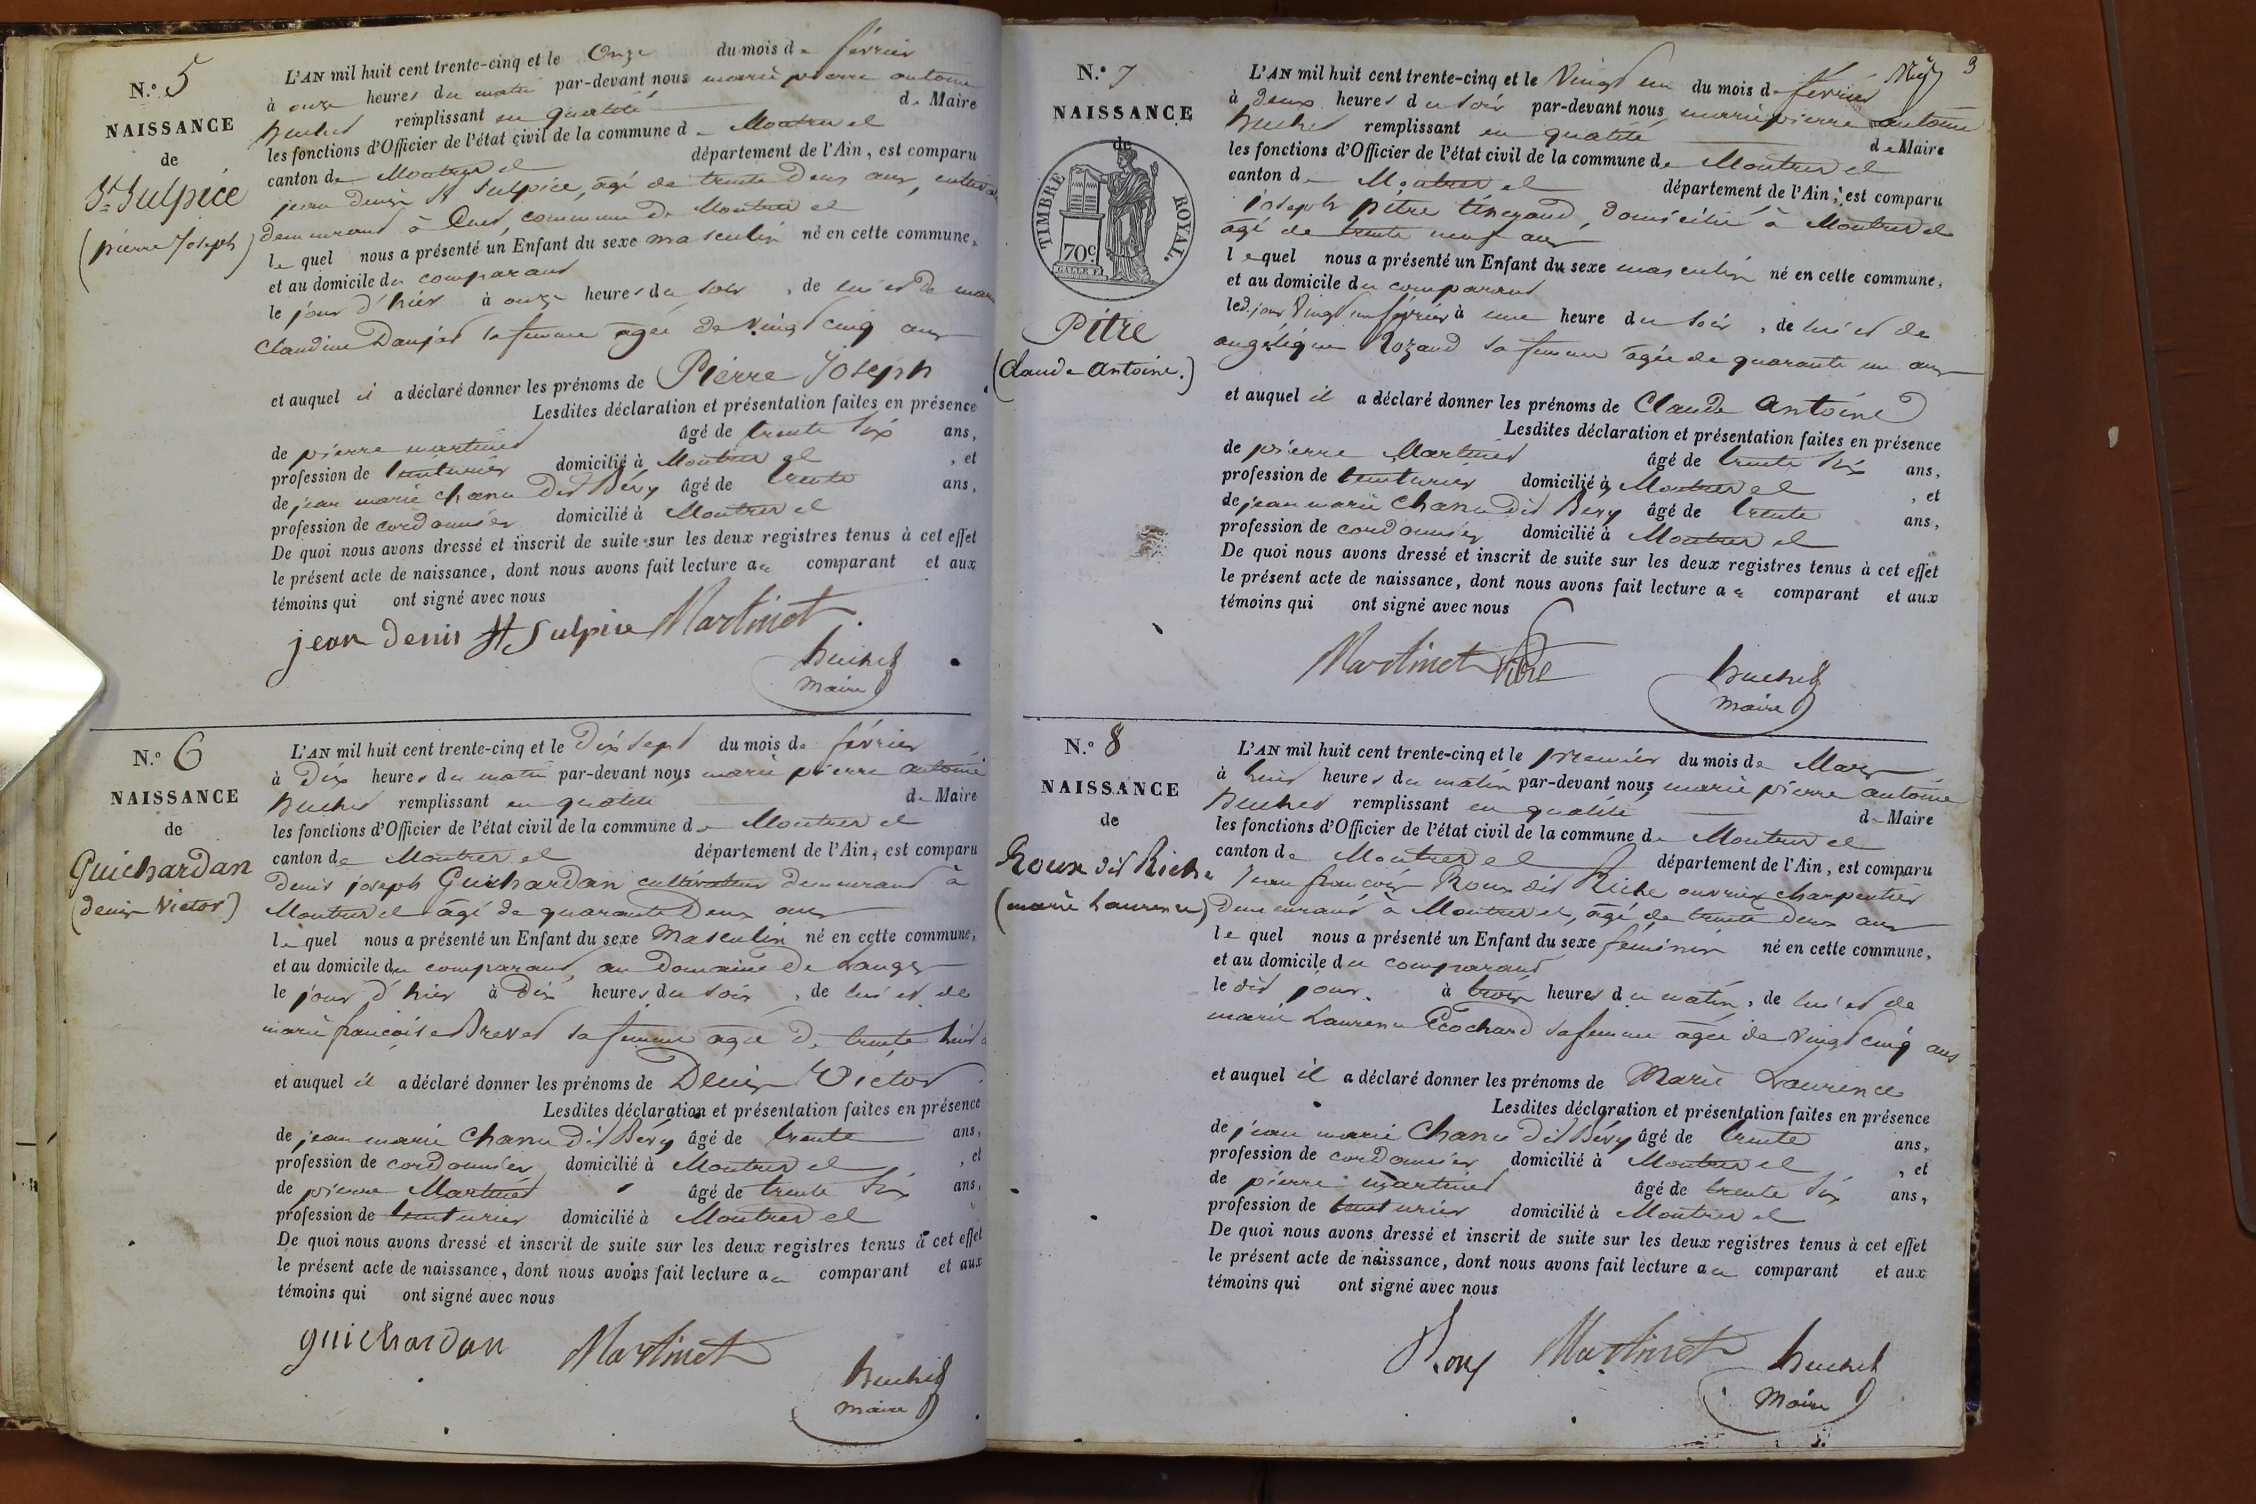 N.° 5
NAISSANCE
de
St Sulpice
(pierre Joseph)
L'AN mil huit cent trente-cinq et le Onze du mois de février
à onze heures du matin par-devant nous marie pierre antoine
huchet remplissant en qualité de Maire
les fonctions d'Officier de l'état civil de la commune de Montrevel
canton de Montrevel département de l'Ain, est comparu
jean denis St Sulpice, âgé de trente deux ans,
demeurant à Cuet, commune de Montrevel
lequel nous a présenté un Enfant du sexe masculin né en cette commune,
et au domicile du comparant
le jour d'hier à onze heures du soir, de lui et de
claudine Danjod sa femme agée de vingt cinq ans
et auquel il a déclaré donner les prénoms de Pierre Joseph
Lesdites déclaration et présentation faites en présence
de pierre martinet âgé de trente six ans,
profession de teinturier domicilié à Montrevel, et
de jean marie chanu dit Béry âgé de trente ans,
profession de cordonnier domicilié à Montrevel
De quoi nous avons dressé et inscrit de suite sur les deux registres tenus à cet effet
le présent acte de naissance, dont nous avons fait lecture au comparant et aux
témoins qui ont signé avec nous
jean denis St Sulpice Martinet
huchet
maire
N.° 6
NAISSANCE
de
Guichardan
(denis Victor)
L'AN mil huit cent trente-cinq et le Dix sept du mois de février
à Dix heures du matin par-devant nous marie pierre antoine
huchet remplissant en qualité de Maire
les fonctions d'Officier de l'état civil de la commune de Montrevel
canton de Montrevel département de l'Ain, est comparu
denis joseph Guichardan cultivateur demeurant à
Montrevel âgé de quarante Deux ans
lequel nous a présenté un Enfant du sexe Masculin né en cette commune,
et au domicile du comparant, au Domaine De Langes
le jour d'hier à Dix heures du soir, de lui et de
marie françoise Brevet sa femme agée De trente huit
et auquel il a déclaré donner les prénoms de Denis Victor
Lesdites déclaration et présentation faites en présence
de jean marie Chanu dit Béry âgé de trente ans,
profession de cordonnier domicilié à Montrevel, et
de pierre Martinet âgé de trente six ans,
profession de teinturier domicilié à Montrevel
De quoi nous avons dressé et inscrit de suite sur les deux registres tenus à cet effet
le présent acte de naissance, dont nous avons fait lecture au comparant et aux
témoins qui ont signé avec nous
guichardan Martinet
huchet
maire
3
N.° 7
NAISSANCE
de
TIMBRE ROYAL.
70c.
Pitre
(Claude Antoine.)
L'AN mil huit cent trente-cinq et le Vingt un du mois de février
à deux heures du soir par-devant nous marie pierre antoine
huchet remplissant en qualité de Maire
les fonctions d'Officier de l'état civil de la commune de Montrevel
canton de Montrevel département de l'Ain, est comparu
joseph pitre, domicilié à Montrevel
âgé de trente neuf ans
lequel nous a présenté un Enfant du sexe masculin né en cette commune,
et au domicile du comparant
led. jour Vingt un février à une heure du soir, de lui et de
angélique Rozand sa femme agée de quarante un ans
et auquel il a déclaré donner les prénoms de Claude Antoine
Lesdites déclaration et présentation faites en présence
de pierre Martinet âgé de trente six ans,
profession de teinturier domicilié à Montrevel, et
de jean marie Chanu dit Béry âgé de trente ans,
profession de cordonnier domicilié à Montrevel
De quoi nous avons dressé et inscrit de suite sur les deux registres tenus à cet effet
le présent acte de naissance, dont nous avons fait lecture au comparant et aux
témoins qui ont signé avec nous
Martinet Pitre
huchet
maire
N.° 8
NAISSANCE
de
Roux dit Riche
(marie Laurence)
L'AN mil huit cent trente-cinq et le premier du mois de Mars
à huit heures du matin par-devant nous marie pierre antoine
huchet remplissant en qualité de Maire
les fonctions d'Officier de l'état civil de la commune de Montrevel
canton de Montrevel département de l'Ain, est comparu
Jean françois Roux dit Riche ouvrier charpentier
demeurant à Montrevel, âgé de trente deux ans
lequel nous a présenté un Enfant du sexe féminin né en cette commune,
et au domicile du comparant
le dit jour à trois heures du matin, de lui et de
marie Laurence Ecochard sa femme agée de vingt cinq ans
et auquel il a déclaré donner les prénoms de Marie Laurence
Lesdites déclaration et présentation faites en présence
de jean marie Chanu dit Béry âgé de trente ans,
profession de cordonnier domicilié à Montrevel, et
de pierre martinet âgé de trente six ans,
profession de teinturier domicilié à Montrevel
De quoi nous avons dressé et inscrit de suite sur les deux registres tenus à cet effet
le présent acte de naissance, dont nous avons fait lecture au comparant et aux
témoins qui ont signé avec nous
Roux Martinet huchet
Maire